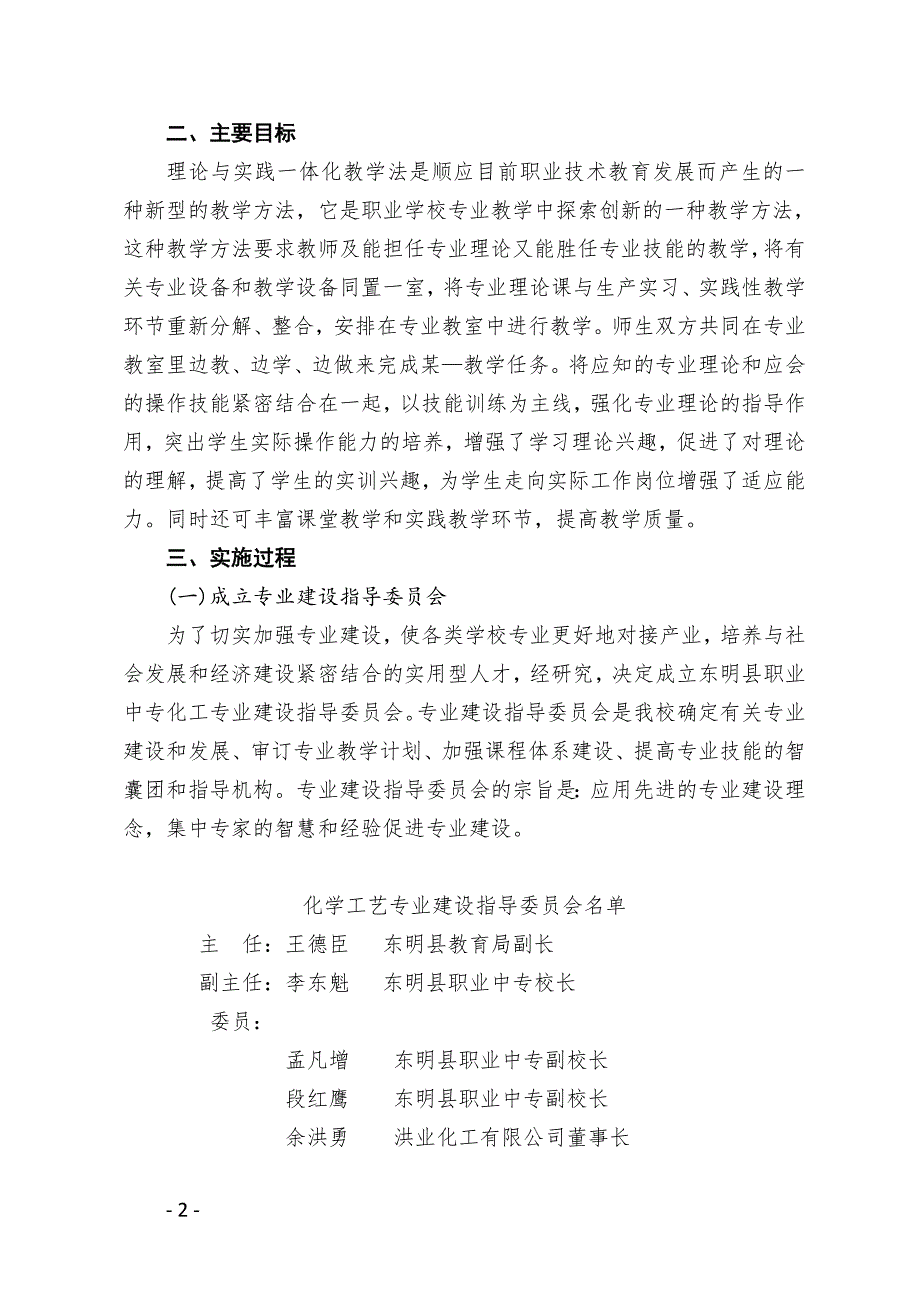 二、主要目标
理论与实践一体化教学法是顺应目前职业技术教育发展而产生的一
种新型的教学方法，它是职业学校专业教学中探索创新的一种教学方法，
这种教学方法要求教师及能担任专业理论又能胜任专业技能的教学，将有
关专业设备和教学设备同置一室，将专业理论课与生产实习、实践性教学
环节重新分解、整合，安排在专业教室中进行教学。师生双方共同在专业
教室里边教、边学、边做来完成某—教学任务。将应知的专业理论和应会
的操作技能紧密结合在一起，以技能训练为主线，强化专业理论的指导作
用，突出学生实际操作能力的培养，增强了学习理论兴趣，促进了对理论
的理解，提高了学生的实训兴趣，为学生走向实际工作岗位增强了适应能
力。同时还可丰富课堂教学和实践教学环节，提高教学质量。
三、实施过程
(一)成立专业建设指导委员会
为了切实加强专业建设，使各类学校专业更好地对接产业，培养与社
会发展和经济建设紧密结合的实用型人才，经研究，决定成立东明县职业
中专化工专业建设指导委员会。专业建设指导委员会是我校确定有关专业
建设和发展、审订专业教学计划、加强课程体系建设、提高专业技能的智
囊团和指导机构。专业建设指导委员会的宗旨是：应用先进的专业建设理
念，集中专家的智慧和经验促进专业建设。
化学工艺专业建设指导委员会名单
主　任：王德臣　东明县教育局副长
副主任：李东魁　东明县职业中专校长
委员：
孟凡增　东明县职业中专副校长
段红鹰　东明县职业中专副校长
余洪勇　洪业化工有限公司董事长
- 2 -